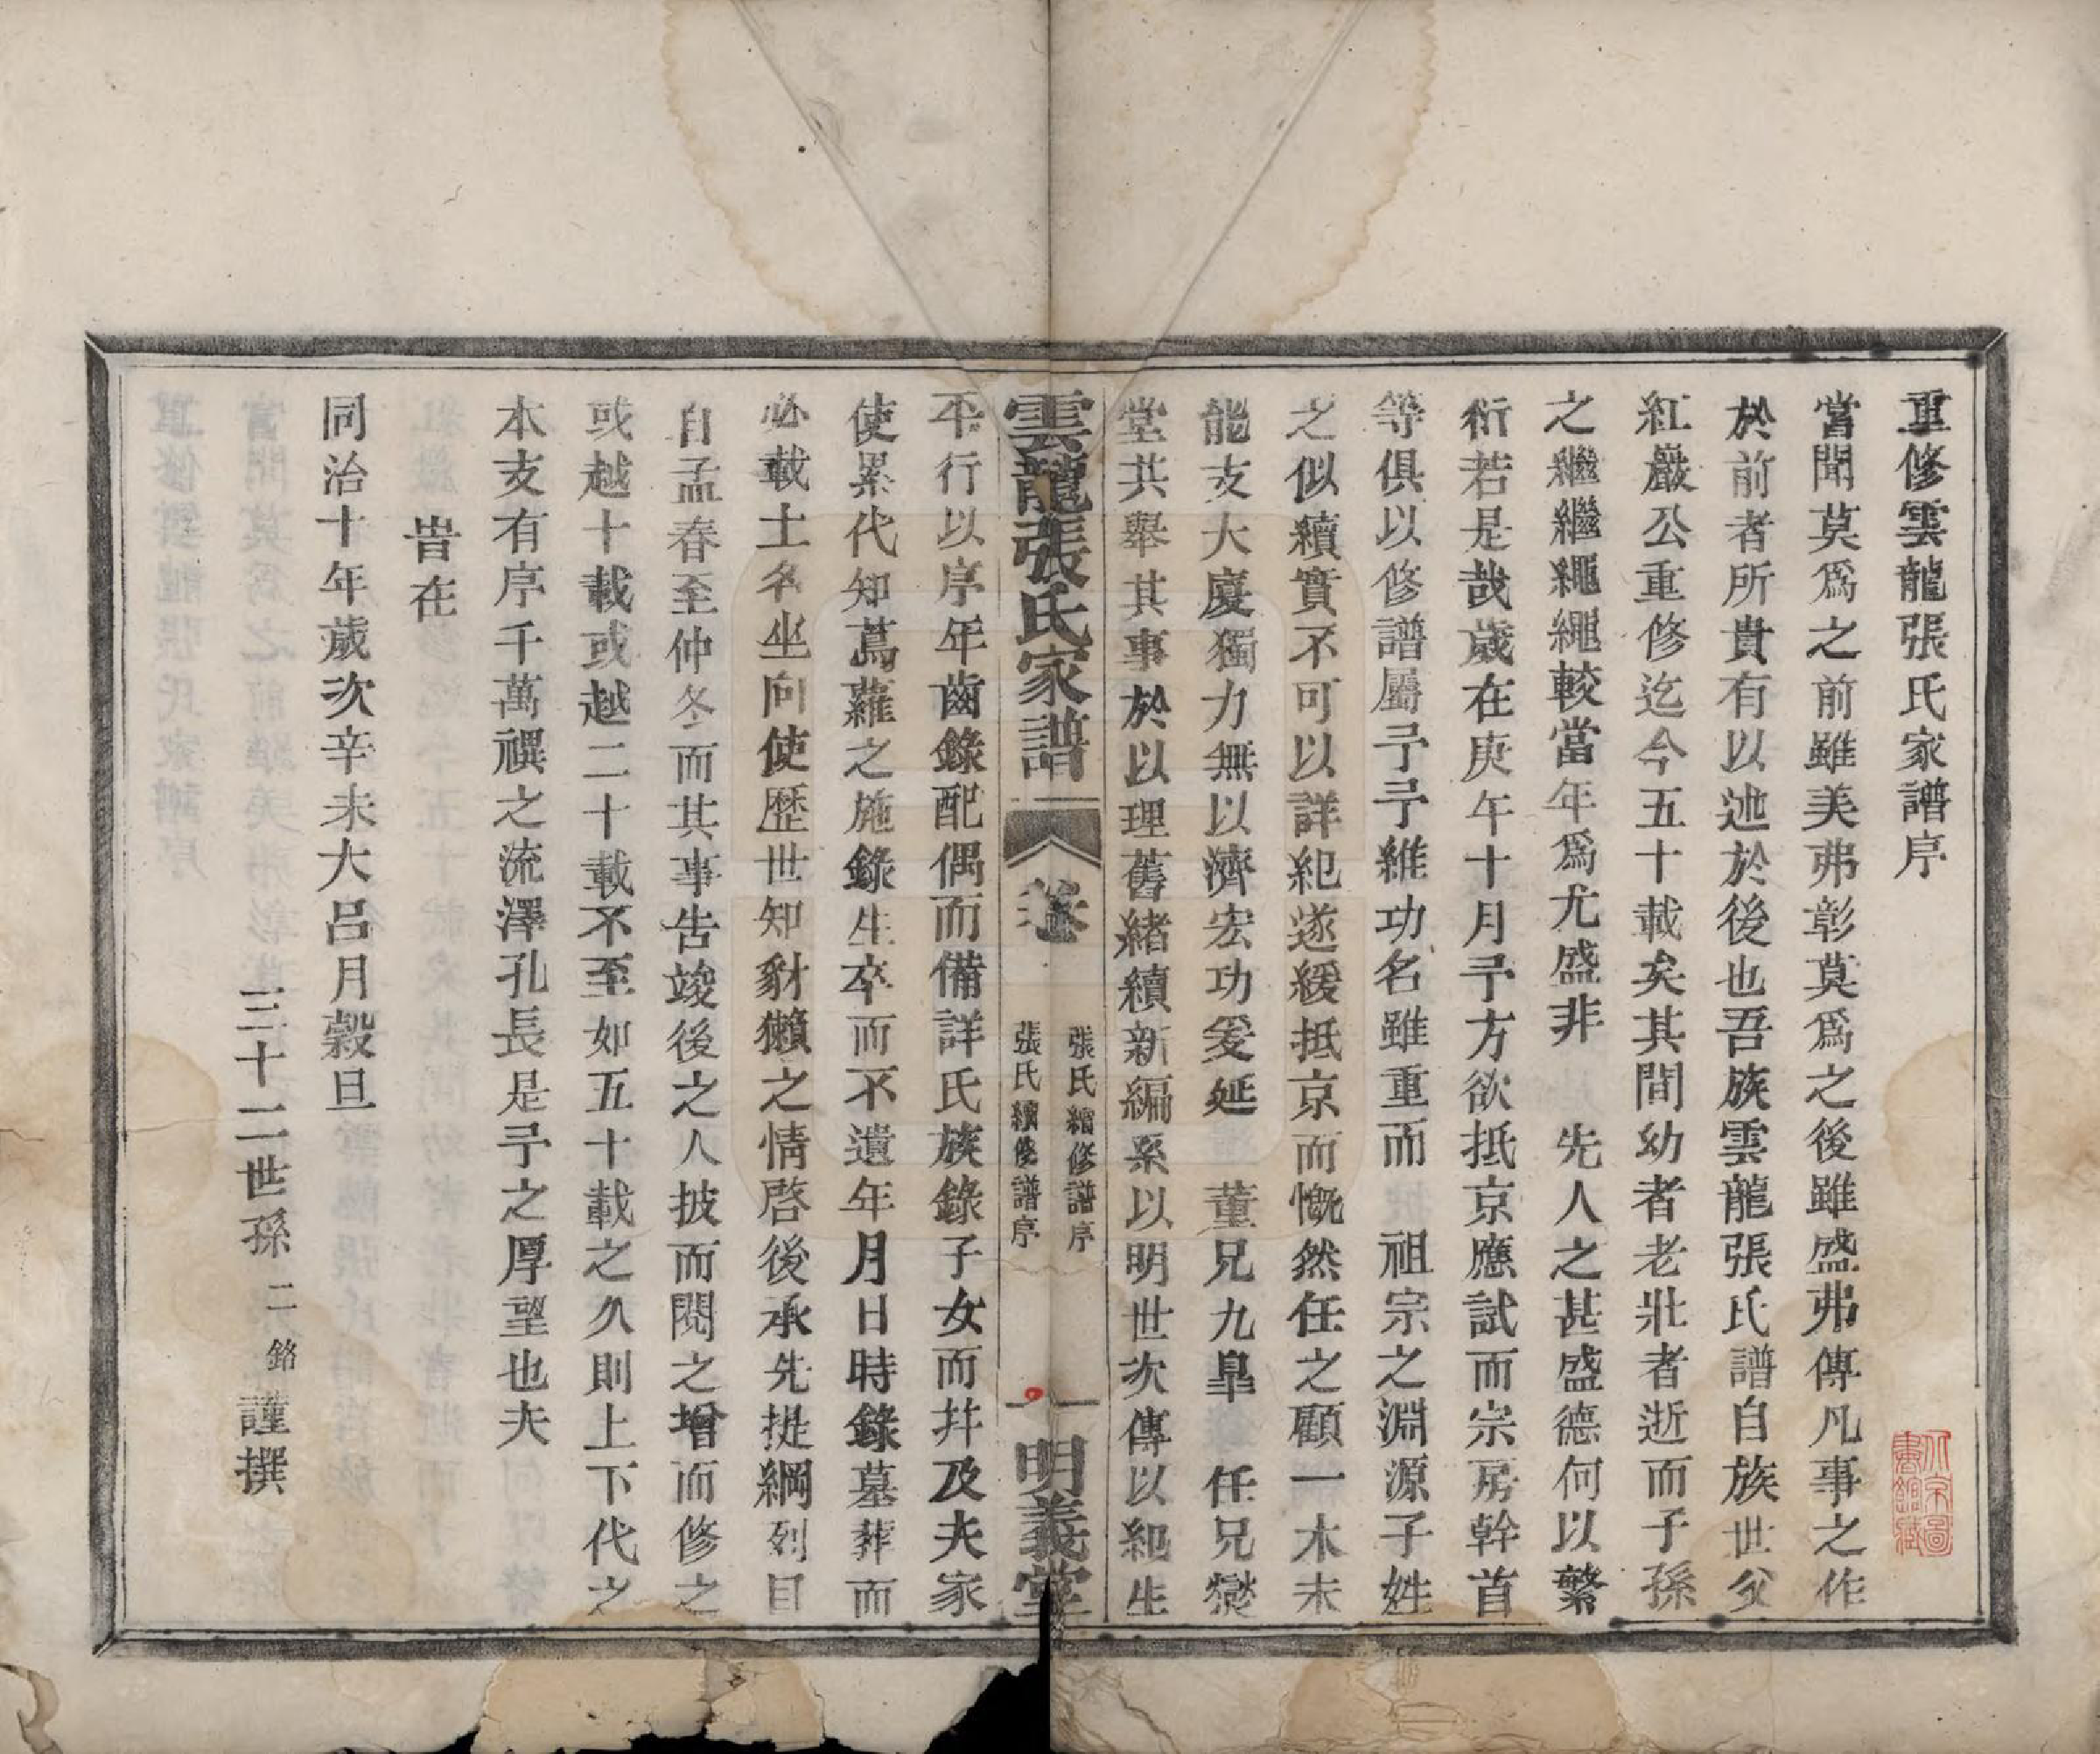 重修雲龍張氏家譜序
嘗聞莫爲之前雖美弗彰莫爲之後雖盛弗傳凡事之作
於前者所貴有以述於後也吾族雲龍張氏譜自族世父
紅巖公重修迄今五十載矣其間幼者老壯者逝而子孫
之繼繼繩繩較當年爲尤盛非 先人之甚盛德何以繁
衍若是哉歲在庚午十月予方欲抵京應試而宗房幹首
等俱以修譜屬予予維功名雖重而 祖宗之淵源子姓
之似續實不可以詳紀遂緩抵京而慨然任之顧一木未
能支大廈獨力無以濟宏功爰延 董兄九皐 任兄爕
堂共舉其事於以理舊緒續新編系以明世次傳以紀生
雲龍張氏家譜 卷 張氏續修譜序 一 明義堂
張氏續修譜序
平行以序年齒錄配偶而備詳氏族錄子女而幷及夫家
使累代知蔦蘿之施錄生卒而不遺年月日時錄墓葬而
必載土名坐向使歷世知豺獺之情啓後承先提綱列目
自孟春至仲冬而其事告竣後之人披而閱之增而修之
或越十載或越二十載不至如五十載之久則上下代之
本支有序千萬禩之流澤孔長是予之厚望也夫
旹在
同治十年歲次辛未大呂月穀旦
三十二世孫二銘謹撰